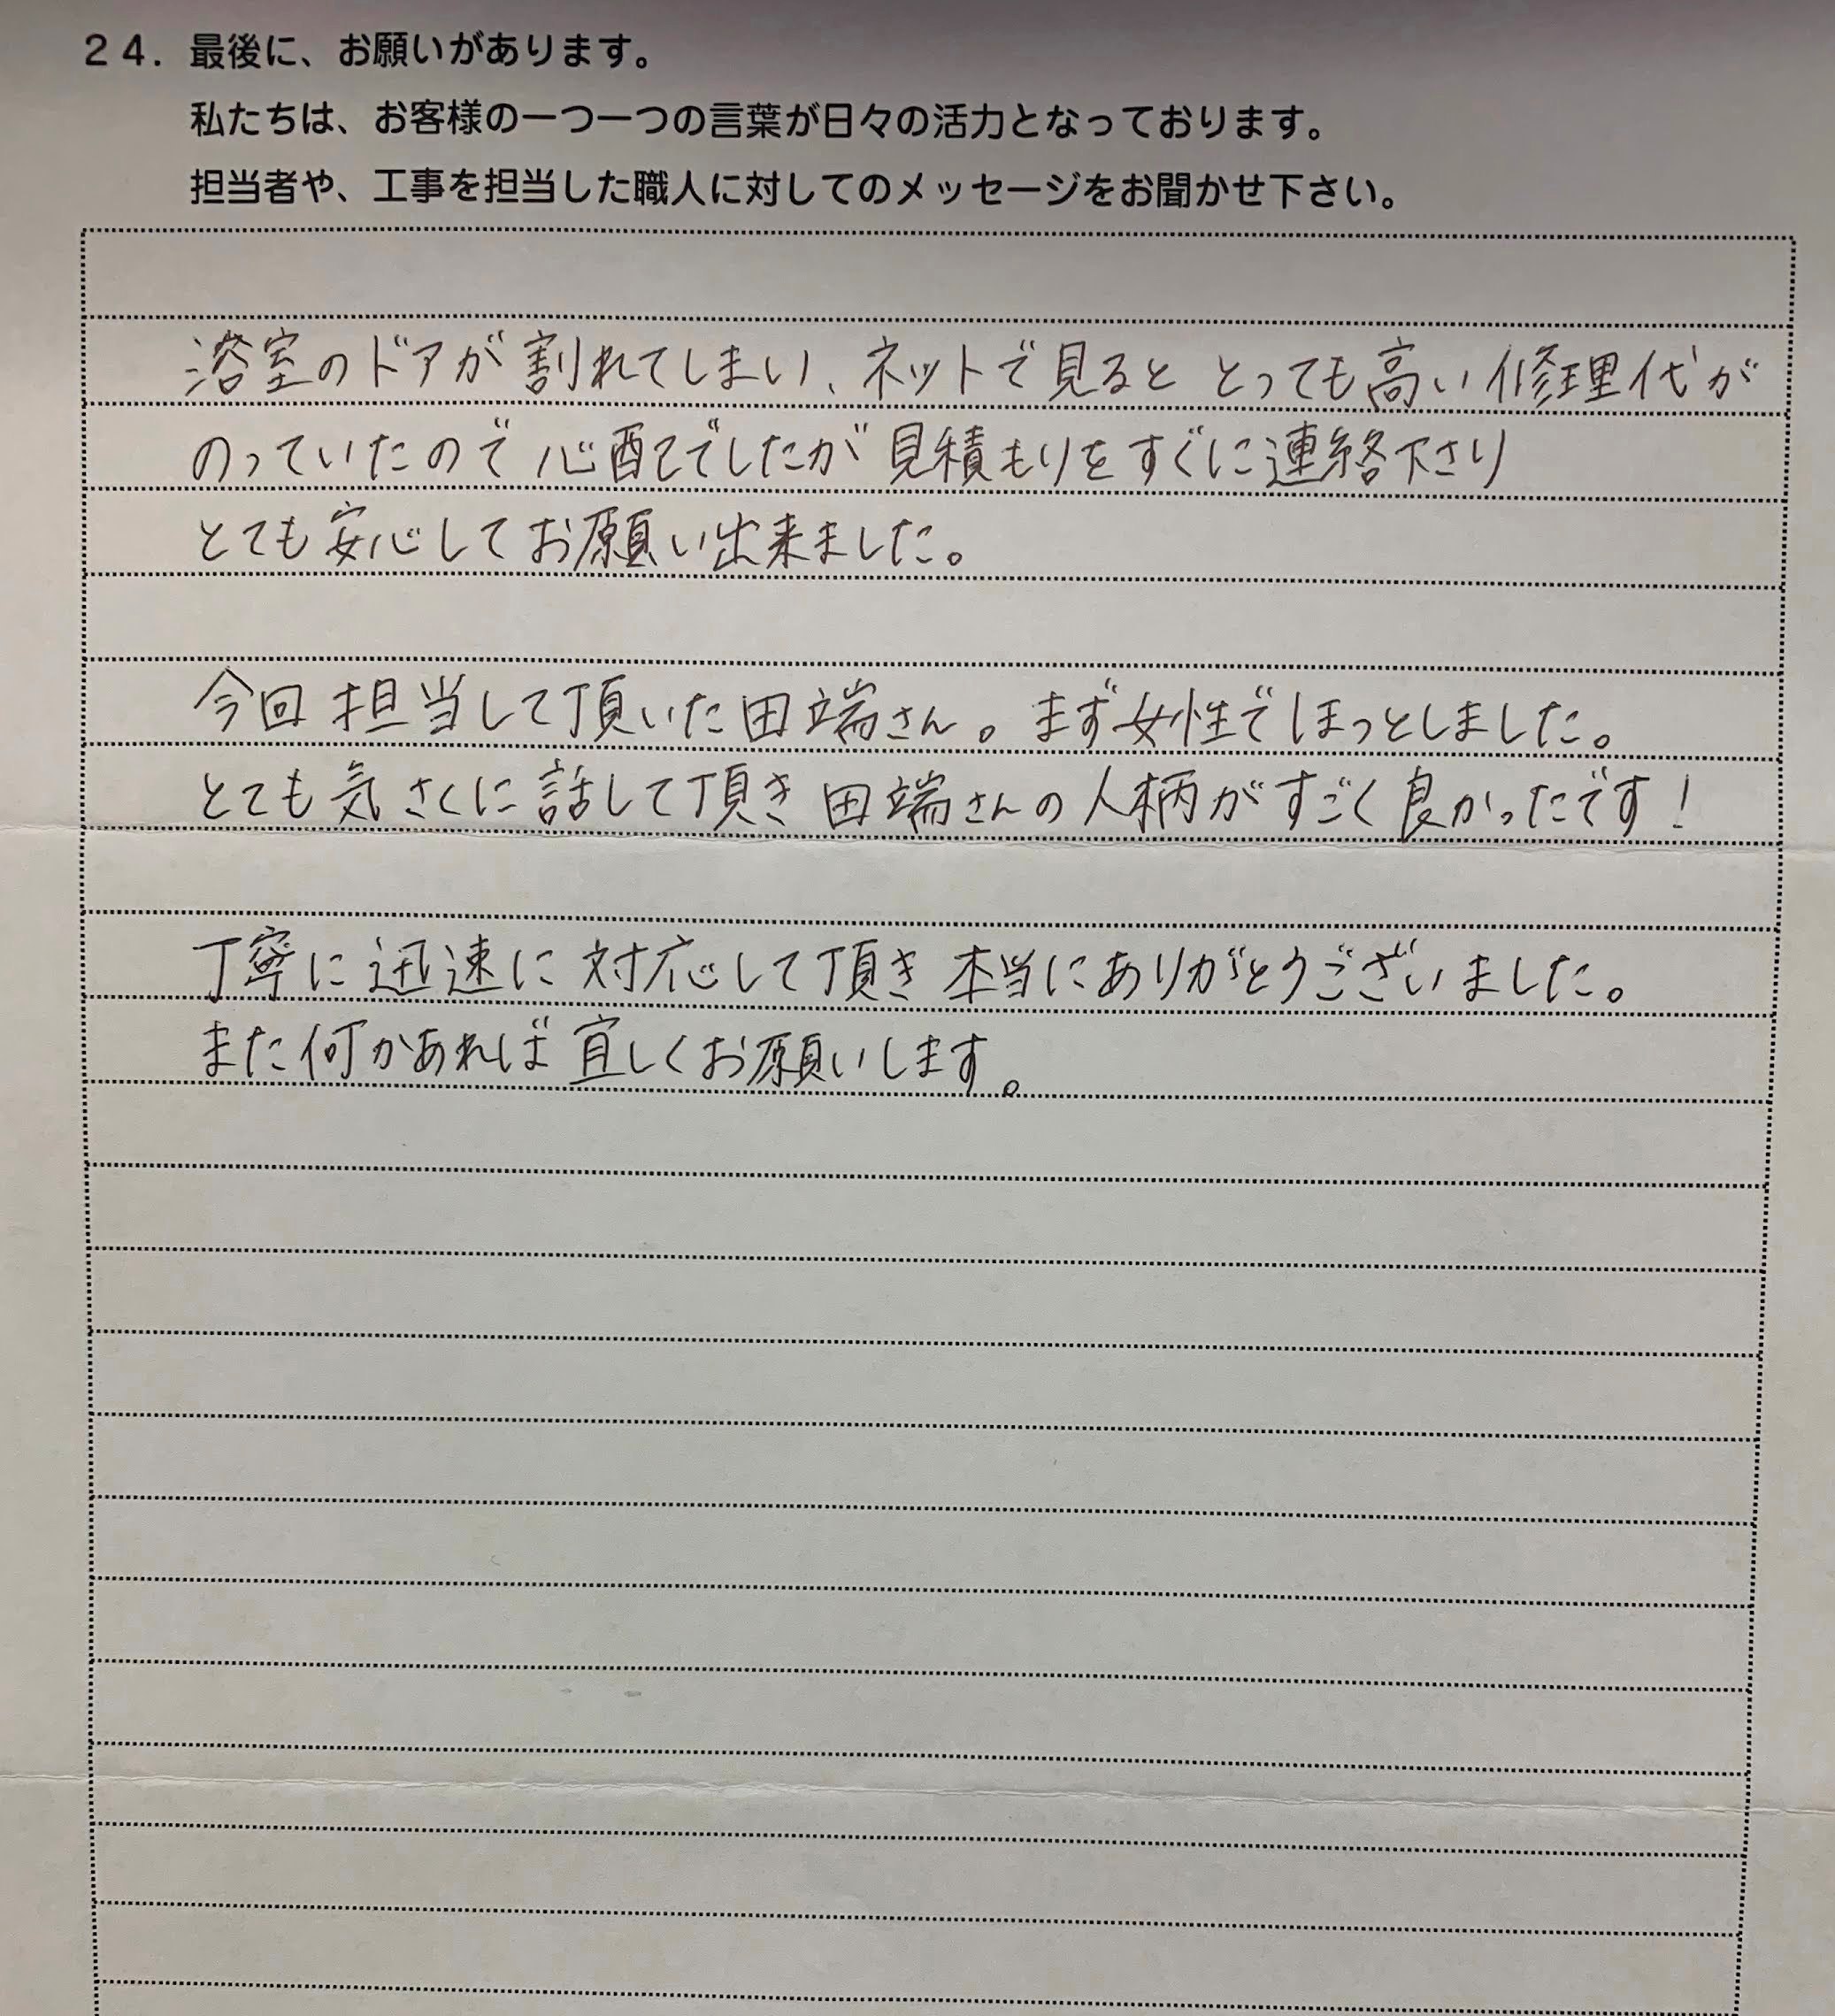 24. 最後に、お願いがあります。
私たちは、お客様の一つ一つの言葉が日々の活力となっております。
担当者や、工事を担当した職人に対してのメッセージをお聞かせ下さい。
浴室のドアが割れてしまい、ネットで見ると とっても高い修理代が
のっていたので心配でしたが見積もりをすぐに連絡下さり
とても安心してお願い出来ました。
今回担当して頂いた田端さん。まず女性でほっとしました。
とても気さくに話して頂き田端さんの人柄がすごく良かったです!
丁寧に迅速に対応して頂き本当にありがとうございました。
また何かあれば宜しくお願いします。